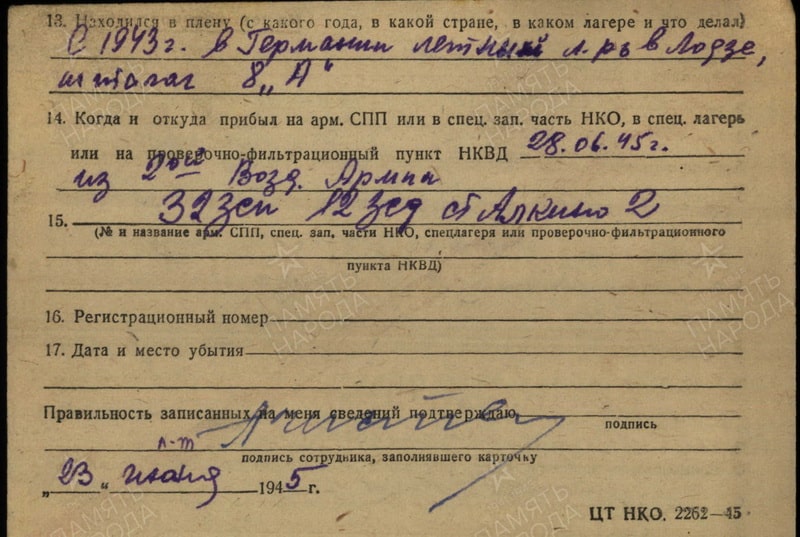 13. Находился в плену (с какого года, в какой стране, в каком лагере и что делал)
С 1943 г. в Германии летный л-рь в Лодзе,
шталаг 8 „А"
14. Когда и откуда прибыл на арм. СПП или в спец. зап. часть НКО, в спец. лагерь
или на проверочно-фильтрационный пункт НКВД 28.06.45г.
из 2ой Возд. Армии
15. 32 зсп 12 зсд ст Алкино 2
(№ и название арм. СПП, спец. зап. части НКО, спецлагеря или проверочно-фильтрационного
пункта НКВД)
16. Регистрационный номер
17. Дата и место убытия
Правильность записанных на меня сведений подтверждаю
подпись
л-т
подпись сотрудника, заполнявшего карточку
„23" июня 1945 г.
ЦТ НКО. 2262—45
ПАМЯТЬ НАРОДА